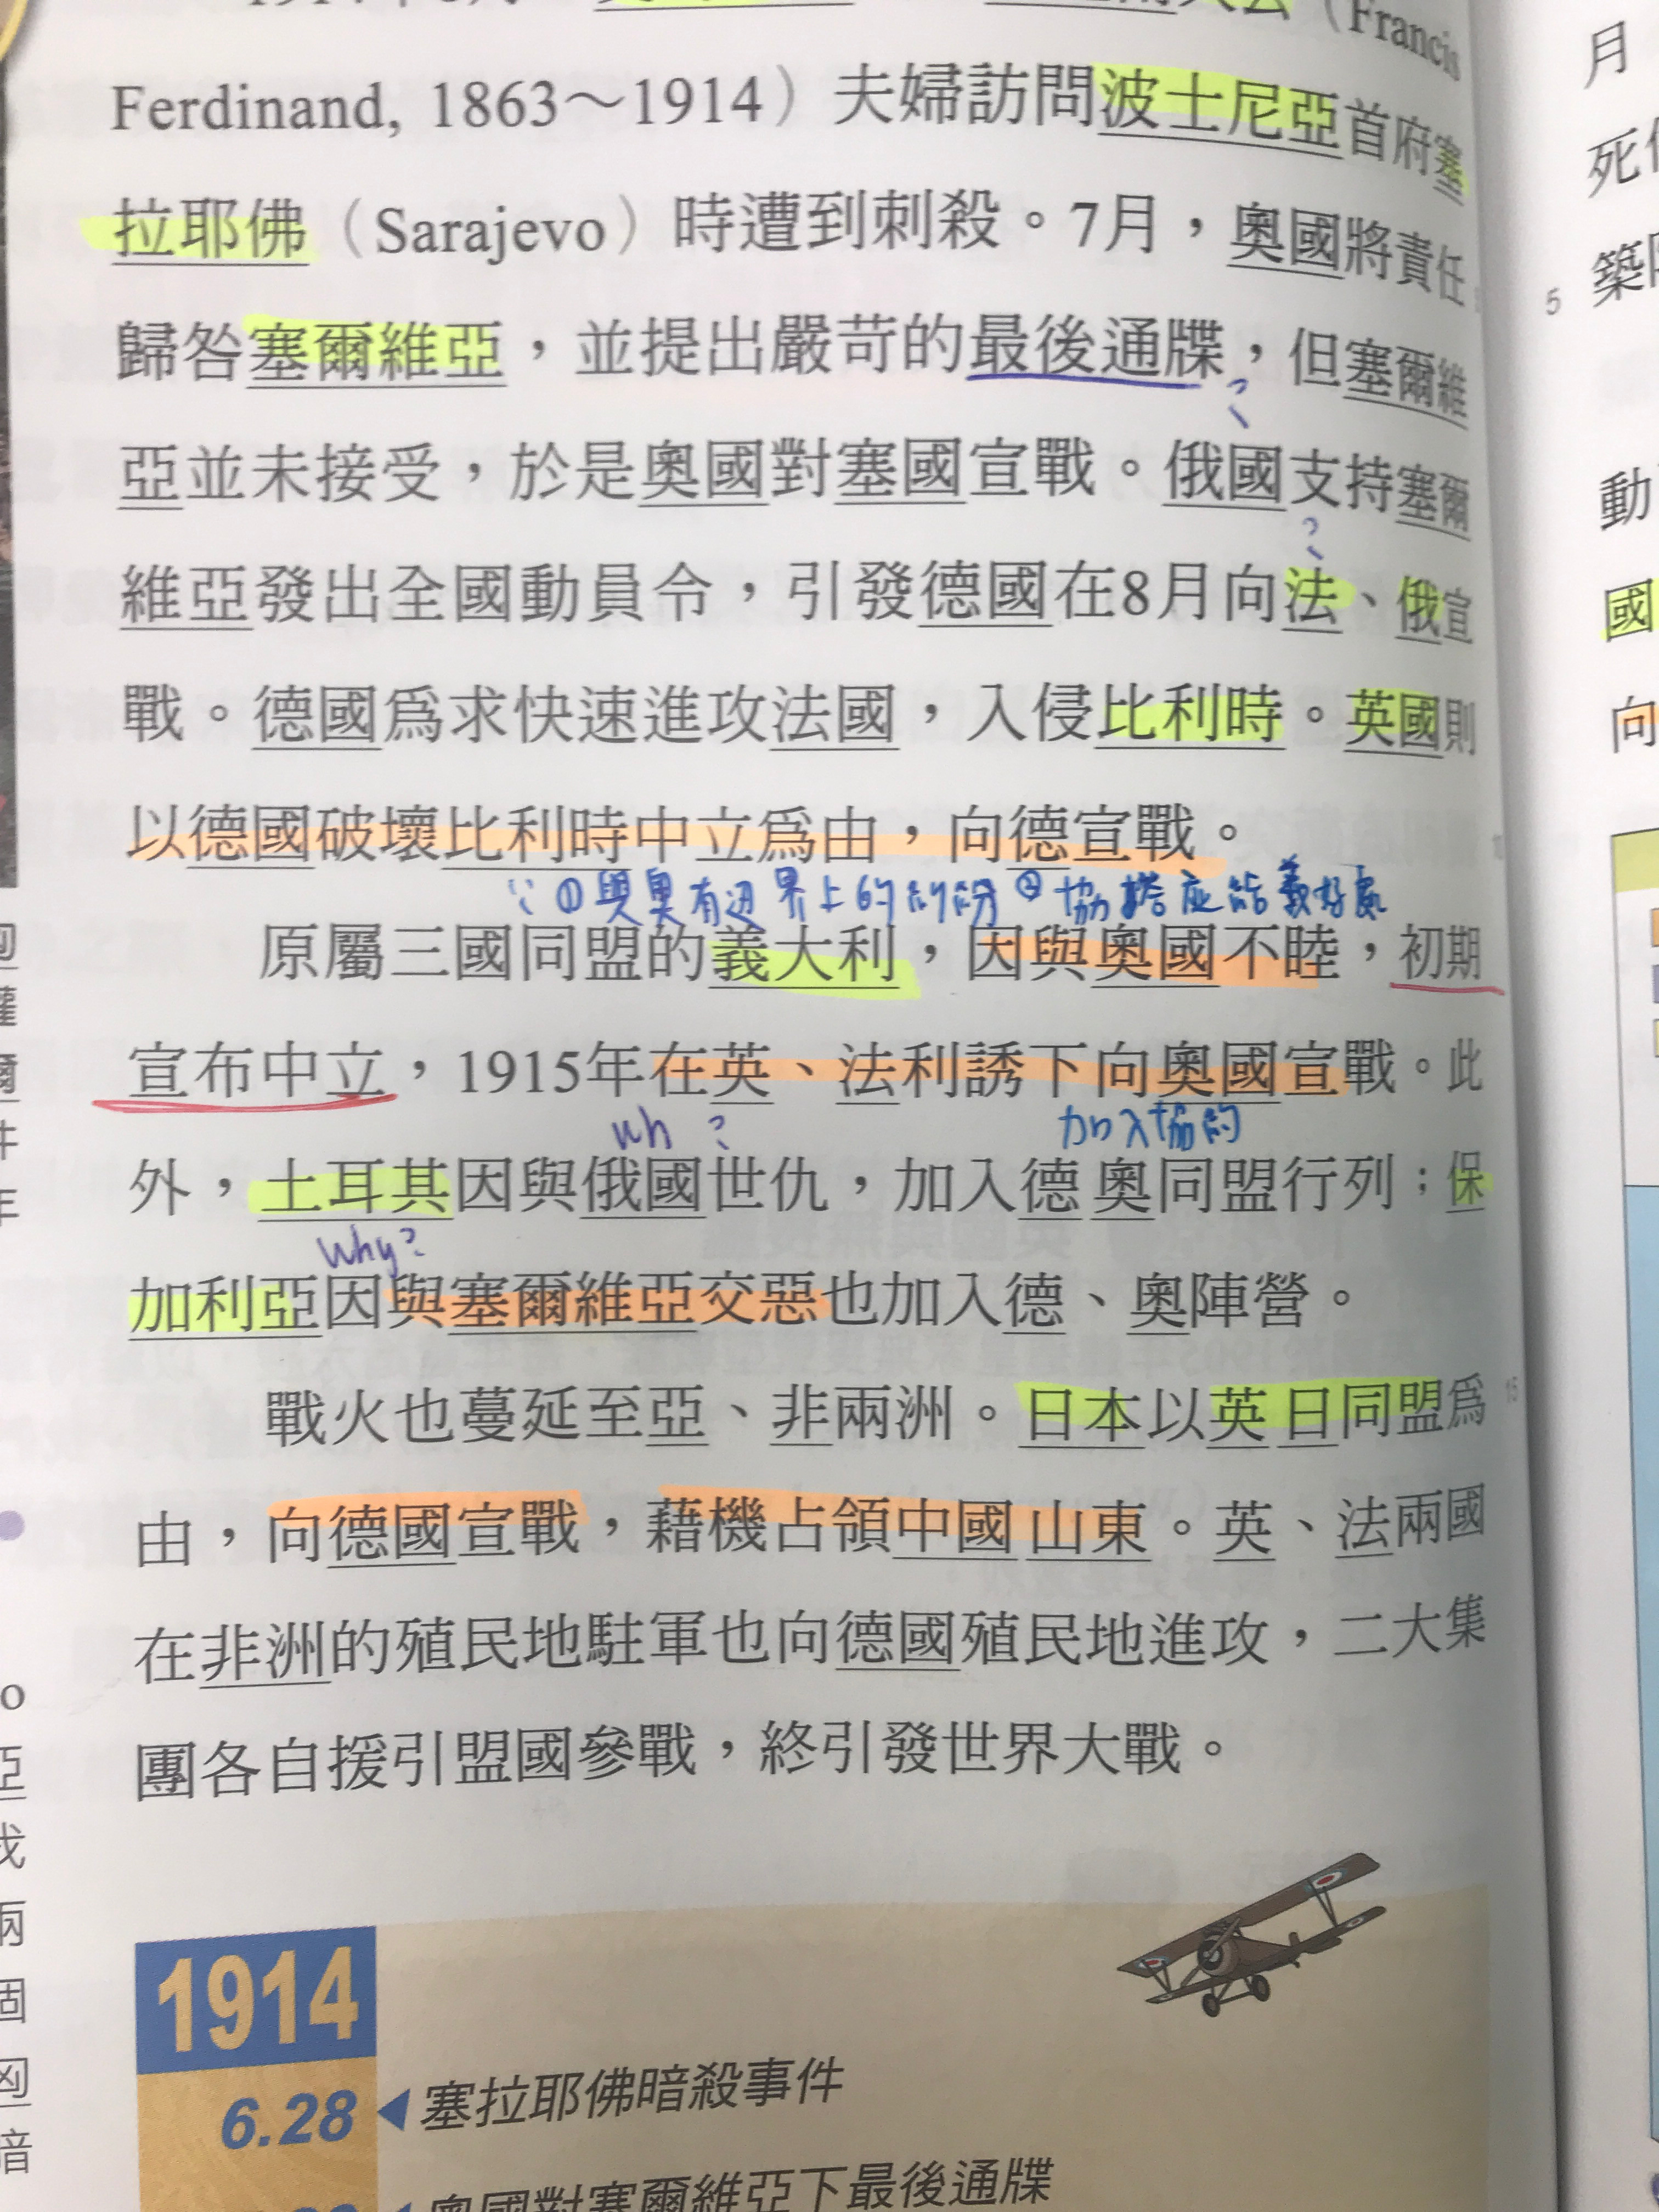 （Francis
Ferdinand, 1863～1914）夫婦訪問波士尼亞首府塞
拉耶佛（Sarajevo）時遭到刺殺。7月，奧國將責任
歸咎塞爾維亞，並提出嚴苛的最後通牒，但塞爾維
?
亞並未接受，於是奧國對塞國宣戰。俄國支持塞爾
?
維亞發出全國動員令，引發德國在8月向法、俄宣
戰。德國為求快速進攻法國，入侵比利時。英國則
以德國破壞比利時中立為由，向德宣戰。
∵①與奧有边界上的糾紛 ②協 應給義好處
原屬三國同盟的義大利，因與奧國不睦，初期
宣布中立，1915年在英、法利誘下向奧國宣戰。此
wh ? 加入協約
外，土耳其因與俄國世仇，加入德奧同盟行列；保
why?
加利亞因與塞爾維亞交惡也加入德、奧陣營。
戰火也蔓延至亞、非兩洲。日本以英日同盟為
由，向德國宣戰，藉機占領中國山東。英、法兩國
在非洲的殖民地駐軍也向德國殖民地進攻，二大集
團各自援引盟國參戰，終引發世界大戰。
1914
6.28 塞拉耶佛暗殺事件
奧國對塞爾維亞下最後通牒
月
死
5 築
動
國
向
15